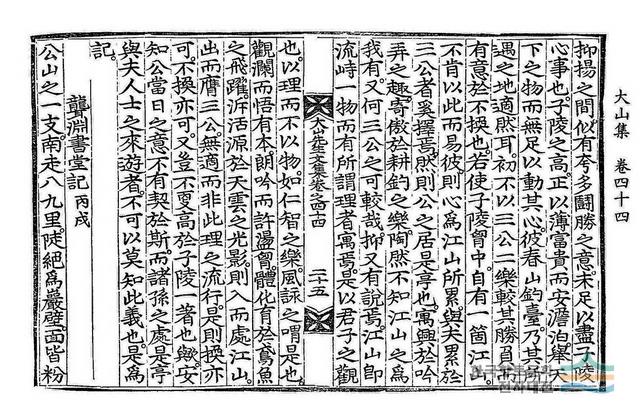 大山集 卷四十四
抑揚之間似有夸多鬪勝之意未足以盡子陵
心事也子陵之高正以薄富貴而安澹泊擧天
下之物而無足以動其心彼春山釣臺乃其所
遇之地適然耳初不以三公二樂較其勝負而
有意於不換也若使子陵胷中自有一箇江山
不肯以此而易彼則心爲江山所累與夫累於
三公者奚擇焉然則公之居是亭也寓興於吟
弄之趣寄傲於耕釣之樂陶然不知江山之爲
我有又何三公之可較哉抑又有說焉江山卽
流峙一物而有所謂理者寓焉是以君子之觀
大山先生文集卷之四十四 二十五
也以理而不以物如仁智之樂風詠之喟是也
觀瀾而悟有本朗吟而許盪胷體化育於鳶魚
之飛躍泝活源於天雲之光影則入而處江山
出而膺三公無適而非此理之流行是則換亦
可不換亦可又豈不更高於子陵一著也歟安
知公當日之意不有契於斯而諸孫之處是亭
與夫人士之來遊者不可以莫知此義也是爲
記
龔淵書堂記 丙戌
公山之一支南走八九里陡絶爲巖壁面皆粉